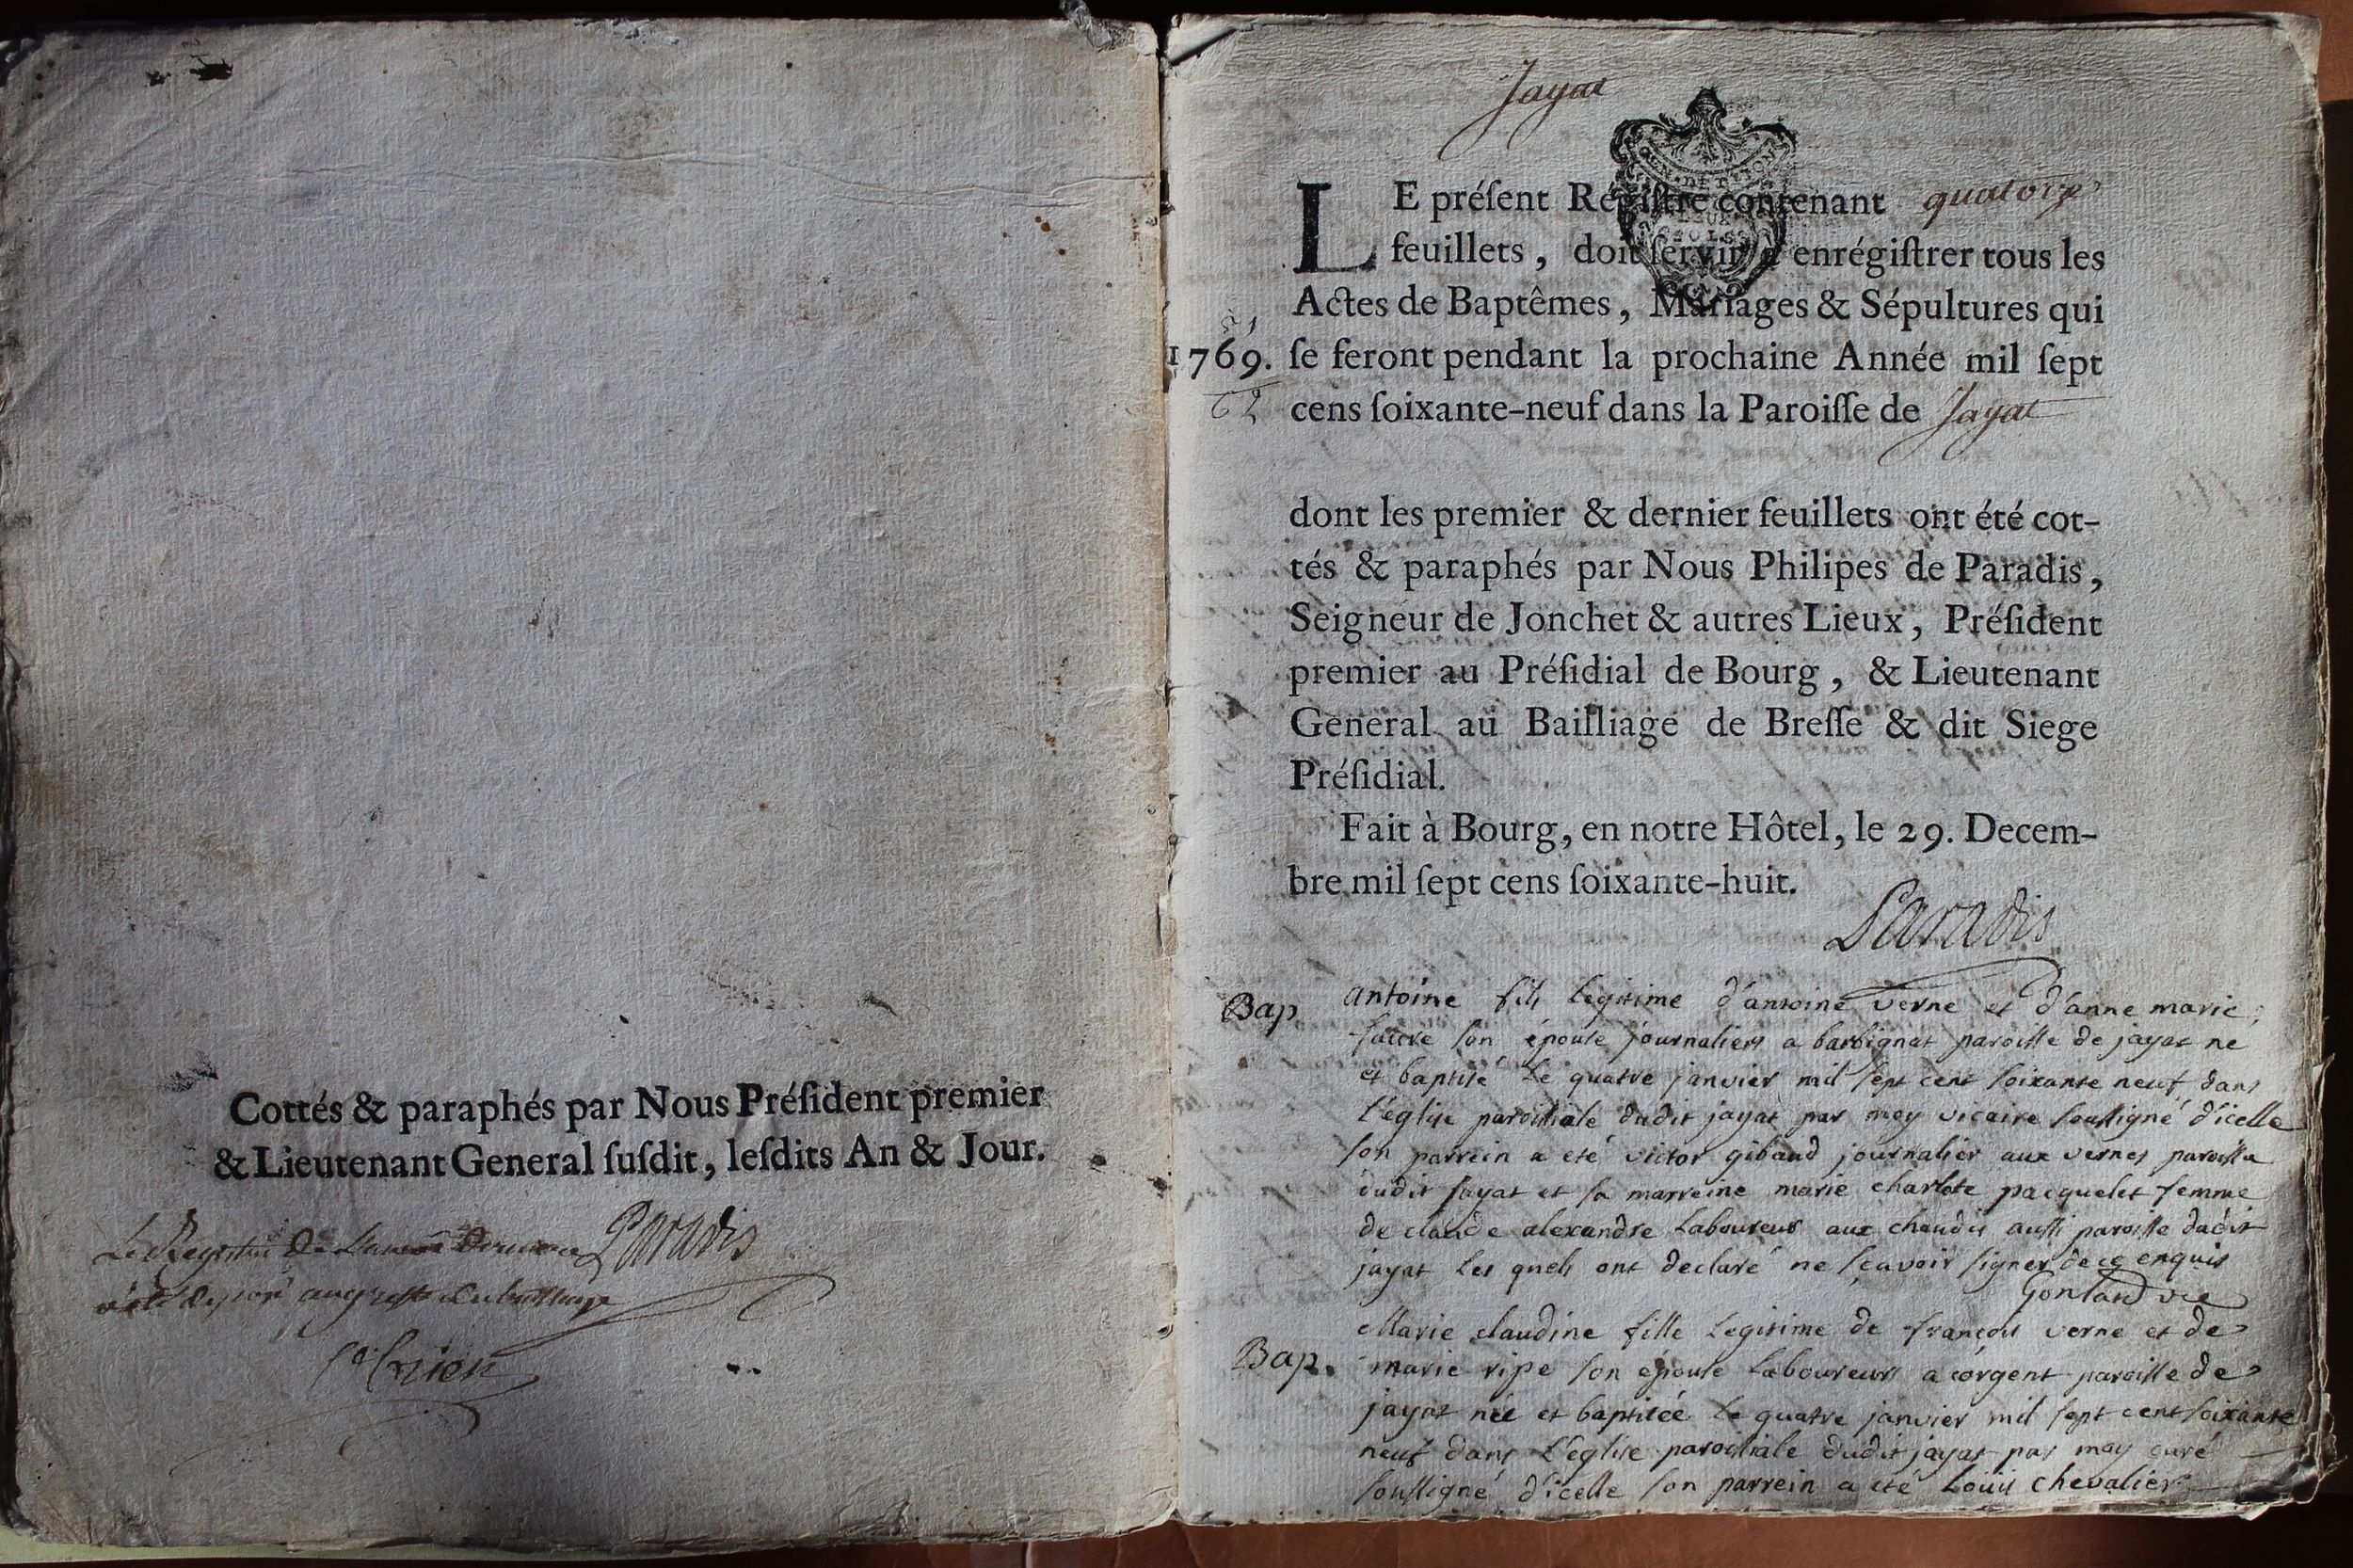 Cottés & paraphés par Nous Préſident premier
& Lieutenant General ſuſdit, leſdits An & Jour.
Le Registre De L'année Derniere Paradis
a été
Jayat
GEN. DE DIJON
LE préſent Régiſtre contenant quatorze
feuillets, doit ſervir à enrégiſtrer tous les
Actes de Baptêmes, Mariages & Sépultures qui
1769. ſe feront pendant la prochaine Année mil ſept
cens ſoixante-neuf dans la Paroiſſe de Jayat
dont les premier & dernier feuillets ont été cot-
tés & paraphés par Nous Philipes de Paradis,
Seigneur de Jonchet & autres Lieux, Préſident
premier au Préſidial de Bourg, & Lieutenant
General au Bailliage de Breſſe & dit Siege
Préſidial.
Fait à Bourg, en notre Hôtel, le 29. Decem-
bre mil ſept cens ſoixante-huit.
Paradis
Bap antoine fils legitime d'antoine verne et d'anne marie
son épouse journaliers a barbignat paroisse de jayat ne
et baptisé le quatre janvier mil sept cent soixante neuf dans
l'eglise paroissiale dudit jayat par moy vicaire soussigné d'icelle
son parrein a eté victor gibaud journalier aux vernes paroisse
dudit jayat et sa marreine marie charlote pacquelet femme
de claude alexandre laboureur aux chaudis aussi paroisse dudit
jayat les quels ont declaré ne sçavoir signer de ce enquis
Gonland vic
Marie claudine fille legitime de françois verne et de
Bap. marie ripe son épouse laboureurs a corgent paroisse de
jayat née et baptisée le quatre janvier mil sept cent soixante
neuf dans l'eglise paroissiale dudit jayat par moy curé
soussigné d'icelle son parrein a eté Louis chevalier